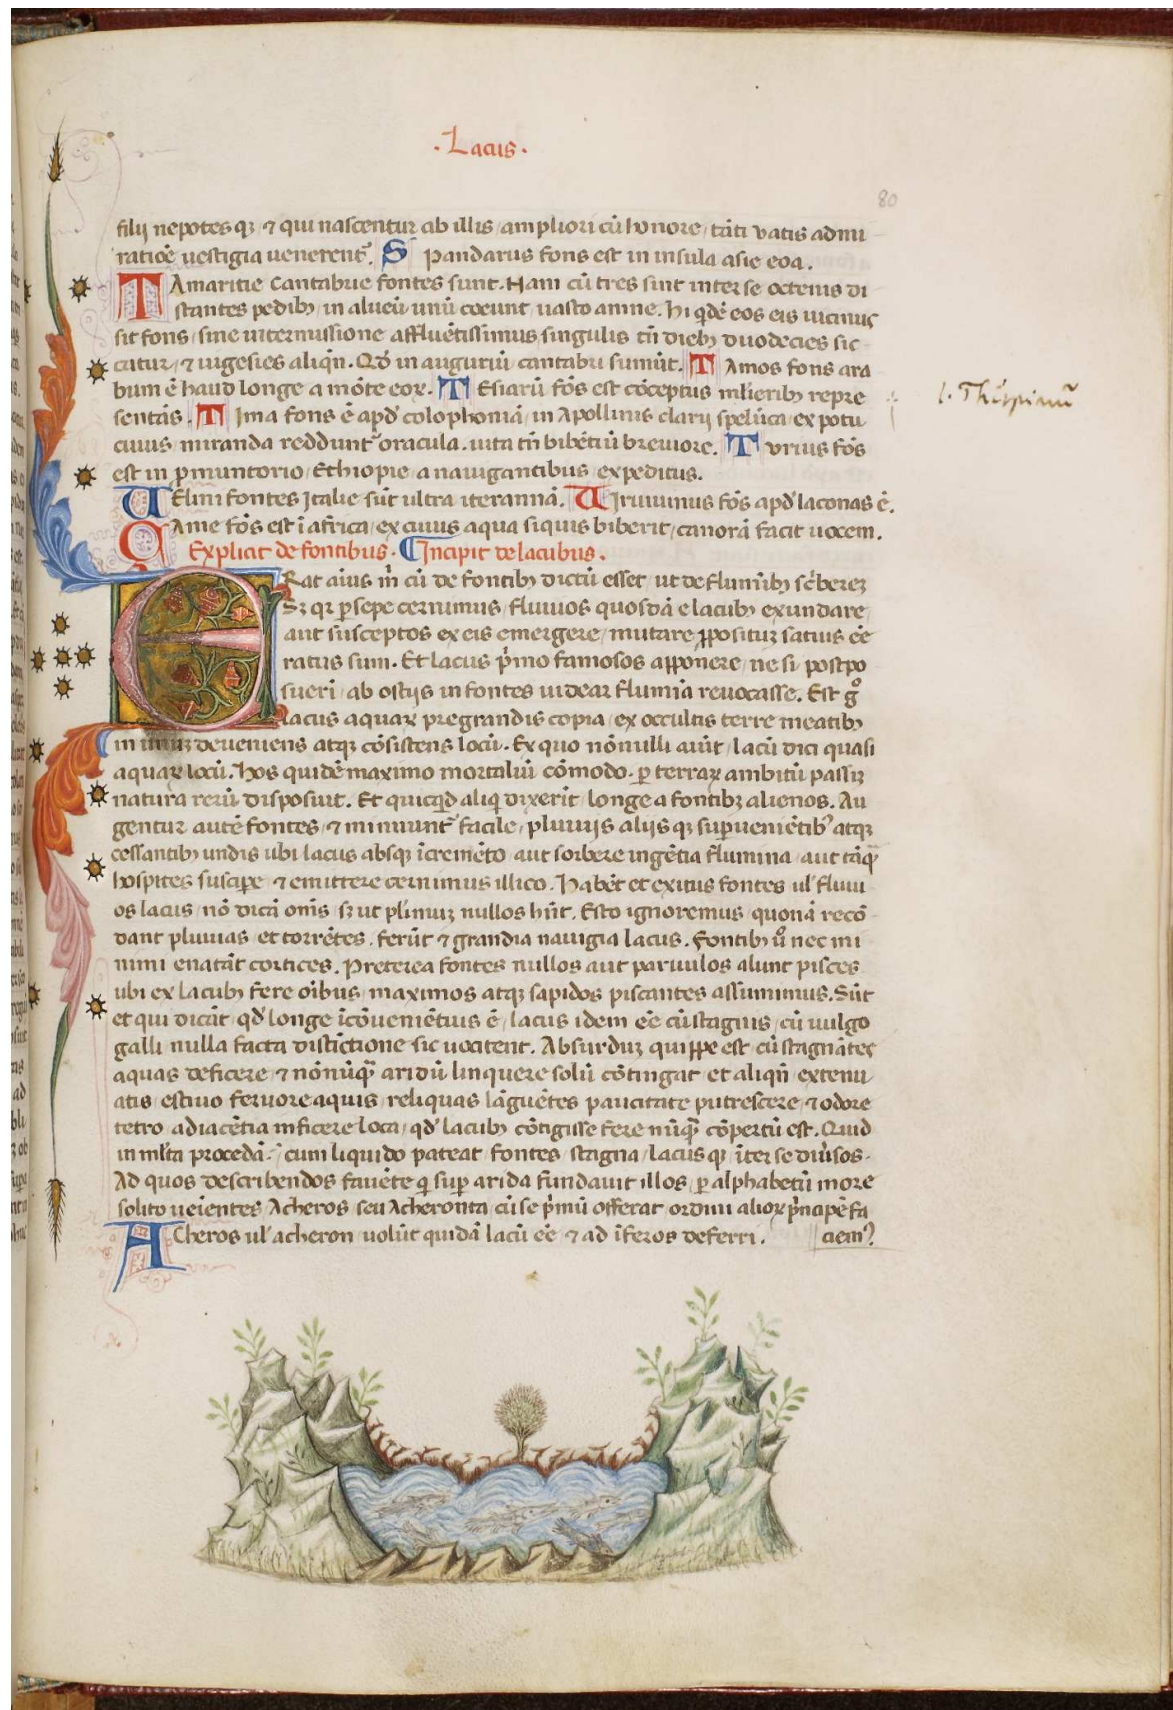 ·Lacus·
80
filij nepotes qꝫ ⁊ qui nascentur ab illis, ampliori cū honore, tāti vatis admi
ratiōe uestigia uenerent᷑. S Pandarus fons est in insula asie eoa.
TAmaritie Cantabrie fontes sunt. Nam cū tres sint inter se octenis di
stantes pedibꝫ, in alueū unū coeunt, uasto amne. Hi qͥdē eos eis uicinus
sit fons, sine intermissione affluētissimus singulis tn̄ diebꝫ duodecies sic
catur, ⁊ uigesies aliqn̄. Qd̄ in auguriū cantabri sumūt. TAmos fons ara
bum ē haud longe a mōte eoꝝ. TEsiarū fōs est cōceptus ml̄ieribꝫ repre
l. Thēspianū
sentās. TIma fons ē apd̄ colophoniā, in Apollinis clarij spelūca, ex potu
cuius, miranda reddunt᷑ oracula. uita tn̄ bibētiū breuiore. TUrius fōs
est in p̄muntorio Ethiopie, a nauigantibus expeditus.
UElini fontes Italie sūt ultra iterannā. UIruuinus fōs apd̄ laconas ē.
ZAme fōs est ī africa, ex cuius aqua siquis biberit, canorā facit uocem.
Explicit de fontibus. Incipit de lacubus.
ERat aīus m̄ cū de fontibꝫ dictū esset, ut de fluminibꝫ sc̄berez
Sꝫ qꝛ p̄sepe cernimus, fluuios quosdā e lacubꝫ exundare,
aut susceptos ex eis emergere, mutare ꝓpositūꝫ satius eē
ratus sum. Et lacus p̄mo famosos apponere, ne si postpo
suerī, ab ostijs in fontes uidear flumīa reuocasse. Est gͦ
lacus aquaꝝ pregrandis copia, ex occultis terre meatibꝫ
in unuꝫ deueniens atqꝫ cōsistens locū. Ex quo nōnulli aiūt, lacū dici quasi
aquaꝝ locū. Hos quidē maximo mortaliū cōmodo. p̱ terraꝝ ambitū passiꝫ
natura rerū disposuit. Et quicqͥd aliqͥ dixerīt, longe a fontibꝫ alienos. Au
gentur autē fontes, ⁊ minuunt᷑ facile, pluuijs alijs qꝫ sup̱ueniētibꝰ atqꝫ
cessantibꝫ undis ubi lacus absqꝫ īcremēto aut sorbere ingētia flumina, aut tāqͣ
hospites suscip̱e ⁊ emittere cernimus illico. Habēt et exitus fontes ul̓ fluui
os lacus, nō dicā om̄s sꝫ ut pl̄imuꝫ nullos hn̄t. Esto ignoremus, quonā recō
dant pluuias, et torrētes. ferūt ⁊ grandia nauigia lacus. Fontibꝫ uͦ nec mi
nimi enatāt cortices. Preterea fontes nullos aut paruulos alunt pisces
ubi ex lacubꝫ fere oībus, maximos atqꝫ sapidos piscantes assumimus. Sūt
et qui dicāt, qd̄ longe īcōueniētius ē, lacus idem eē cū stagnis, cū uulgo
galli nulla facta distīctione sic uocitent. Absurduꝫ quippe est cū stagnātes
aquas deficere, ⁊ nōnūqͣ aridū linquere solū cōtingat, et aliqn̄ extenu
atis estiuo feruore aquis, reliquas lāguētes paucitate putrescere, ⁊ odore
tetro adiacētia inficere loca, qd̄ lacubꝫ cōtigisse fere nūqͣ cōpertū est. Quid
in ml̄ta procedā. cum liquido pateat fontes, stagna, lacus qꝫ īter se diūsos.
Ad quos describendos fauēte qͥ sup̱ arida fundauit illos, p̱ alphabetū more
solito ueīentes Acheros seu Acheronta, cū se p̄mū offerat, ordini alioꝝ p̄ncipē fa
ciem᷒.
ACheros ul̓ acheron, uolūt quidā lacū eē ⁊ ad īferos deferri.